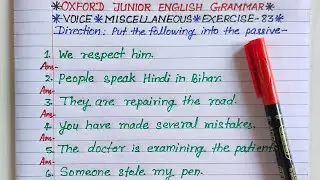 *OXFORD JUNIOR ENGLISH GRAMMAR*
*VOICE*MISCELLANEOUS*EXERCISE-83*
Direction: Put the following into the passive-
1. We respect him.
Ans-
2. People speak Hindi in Bihar.
Ans-
3. They are repairing the road.
Ans-
4. You have made several mistakes.
Ans-
5. The doctor is examining the patient.
Ans-
6. Someone stole my pen.